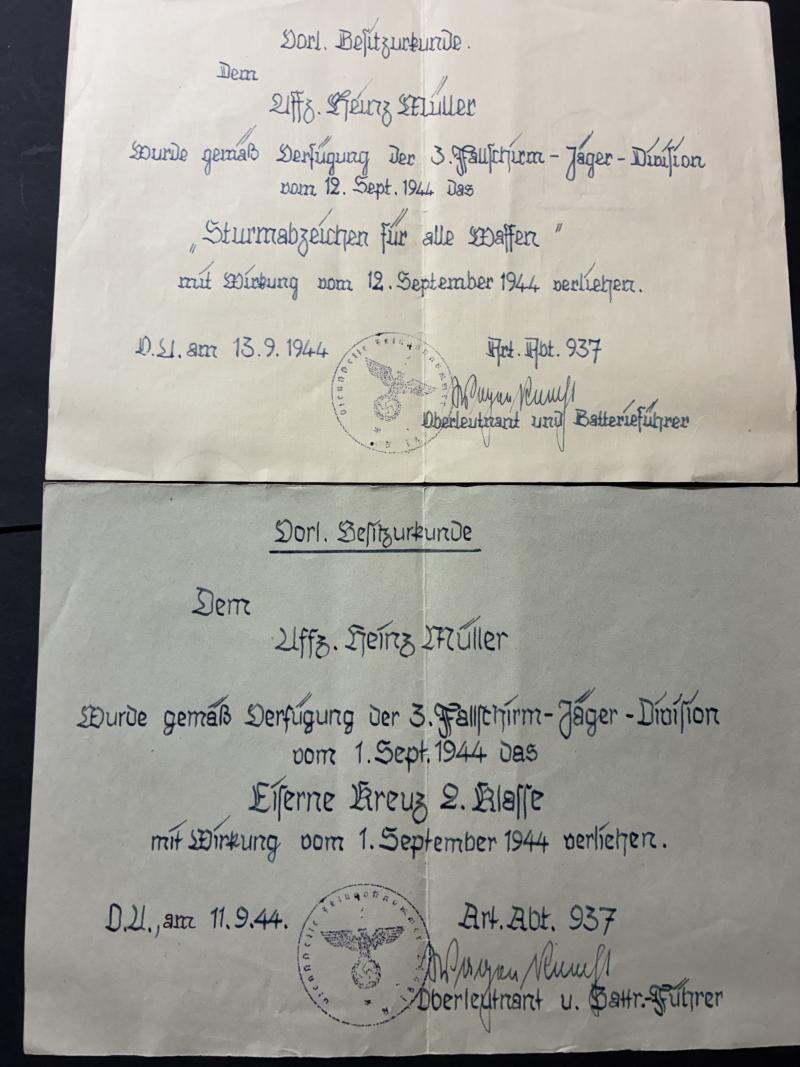 Vorl. Besitzurkunde.
Dem
Uffz. Heinz Müller
Wurde gemäß Verfügung der 3. Fallschirm-Jäger-Division
vom 12. Sept. 1944 das
„Sturmabzeichen für alle Waffen"
mit Wirkung vom 12. September 1944 verliehen.
D.U. am 13.9.1944
Art. Abt. 937
Oberleutnant und Batterieführer
Vorl. Besitzurkunde
Dem
Uffz. Heinz Müller
Wurde gemäß Verfügung der 3. Fallschirm-Jäger-Division
vom 1. Sept. 1944 das
Eiserne Kreuz 2. Klasse
mit Wirkung vom 1. September 1944 verliehen.
D.U., am 11.9.44.
Art. Abt. 937
Oberleutnant u. Battr.-Führer